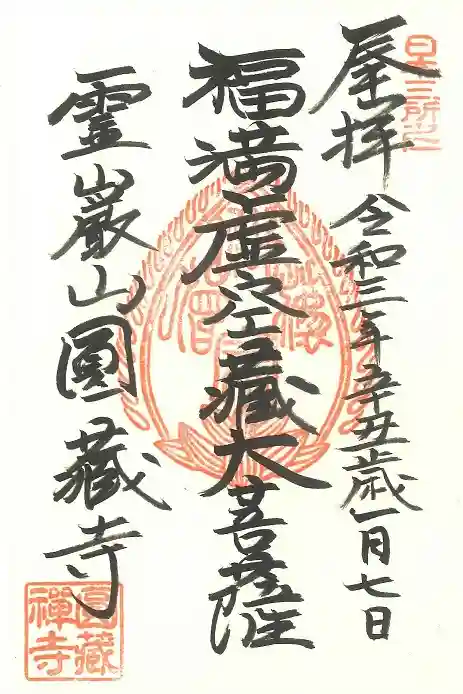 日本三所之一
奉拝 令和三年辛丑歳一月七日
福満虚空蔵大菩薩
霊巌山圓蔵寺
圓藏禪寺